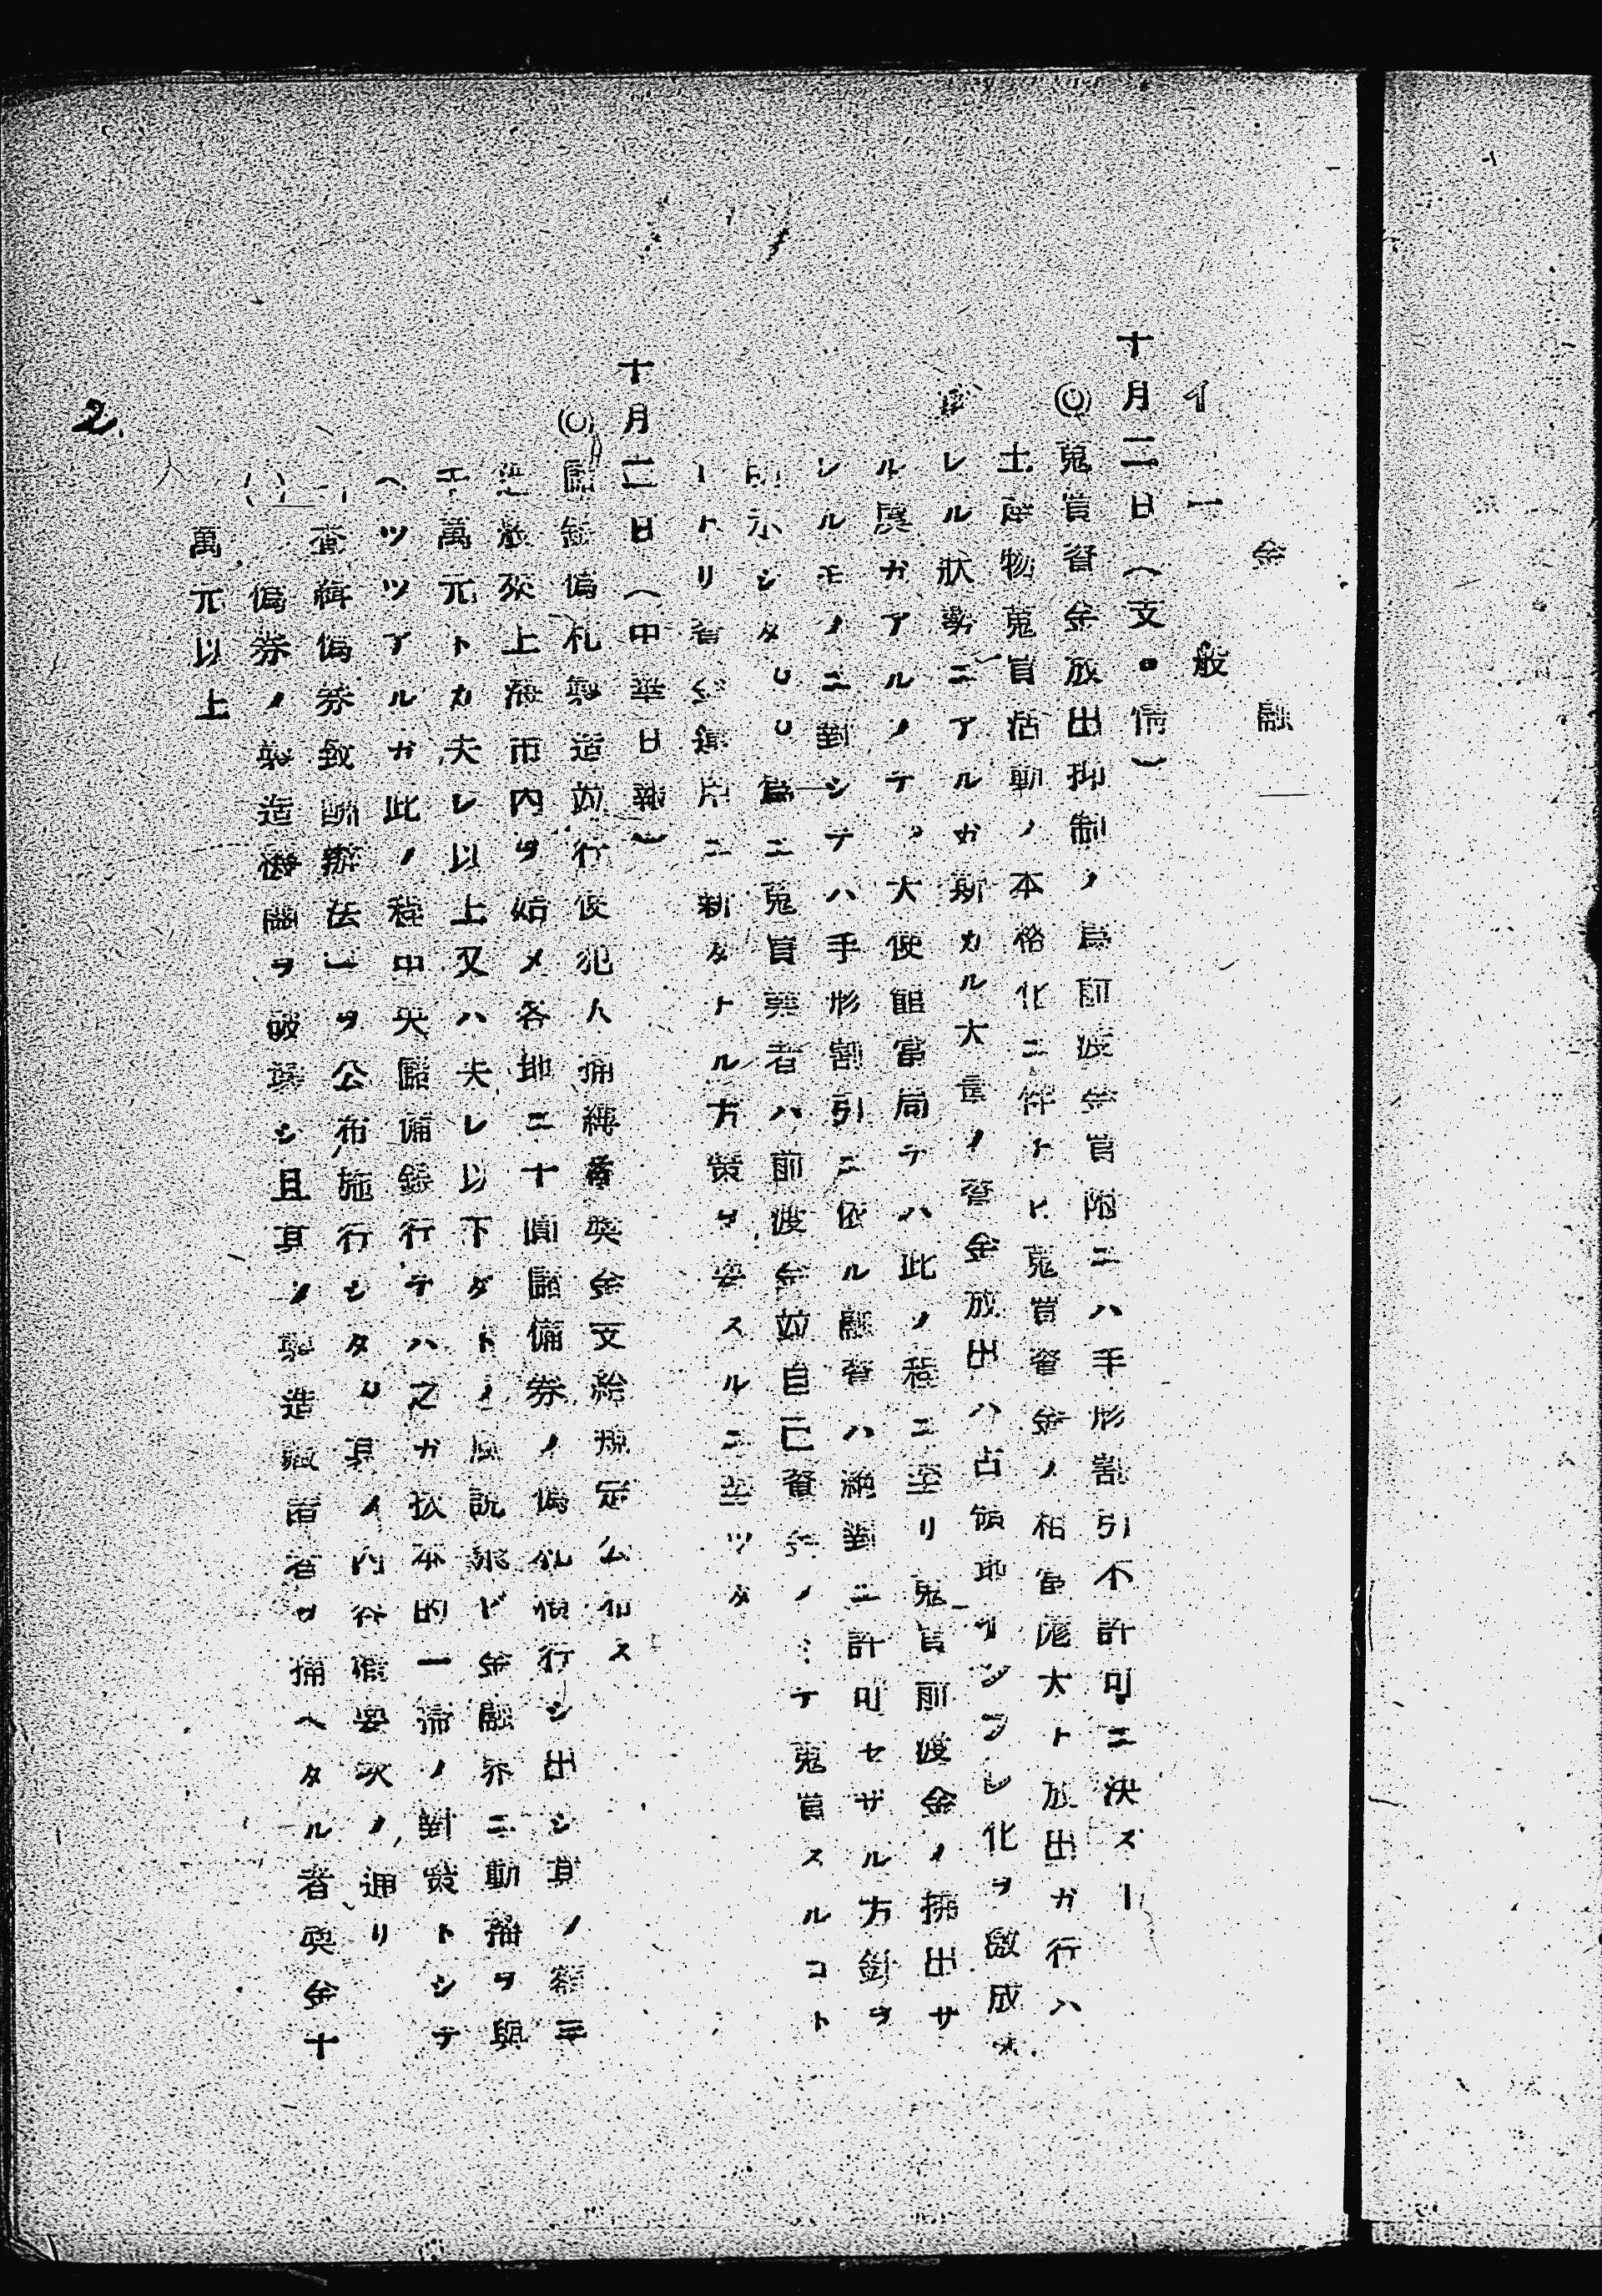 金融
イ 一般
十月二日(文ロ情)
◎蒐買資金放出抑制ノ爲前渡金買附ニハ手形割引不許可ニ決スー
土産物蒐買活動ノ本格化ニ伴ヒ蒐買資金ノ相當尨大ト放出ガ行ハ
レル狀勢ニアルガ斯カル大量ノ資金放出ハ占領地インフレ化ヲ釀成ス
ル虞ガアルノテ、大使館當局テハ此ノ程ニ至リ蒐買前渡金ノ拂出サ
レルモノニ對シテハ手形割引ニ依ル融資ハ絶對ニ許可セザル方針ヲ
明示シタリ 爲ニ蒐買業者ハ前渡金並自己資金ノ テ蒐買スルコト
トリ 者 ニ新タトル方策ヲ要スルニ至ツタ
十月三日(中華日報)
◎儲銀偽札製造竝行使犯人捕縛者奬金支給規定公布ス
近 來上海市內ヲ始メ各地ニ十圓儲備券ノ偽札横行シ出シ其ノ額三
千萬元トカ夫レ以上又ハ夫レ以下ダトノ風說飛ビ金融界ニ動搖ヲ與
ヘツツアルガ此ノ程中央儲備銀行テハ之ガ拔本的一掃ノ對策トシテ
「査緝偽券致酬辦法」ヲ公布施行シタリ其ノ內容概要次ノ通リ
(一)偽券ノ製造機關ヲ破獲シ且其ノ製造販賣者ヲ捕ヘタル者奬金十
萬元以上
2.